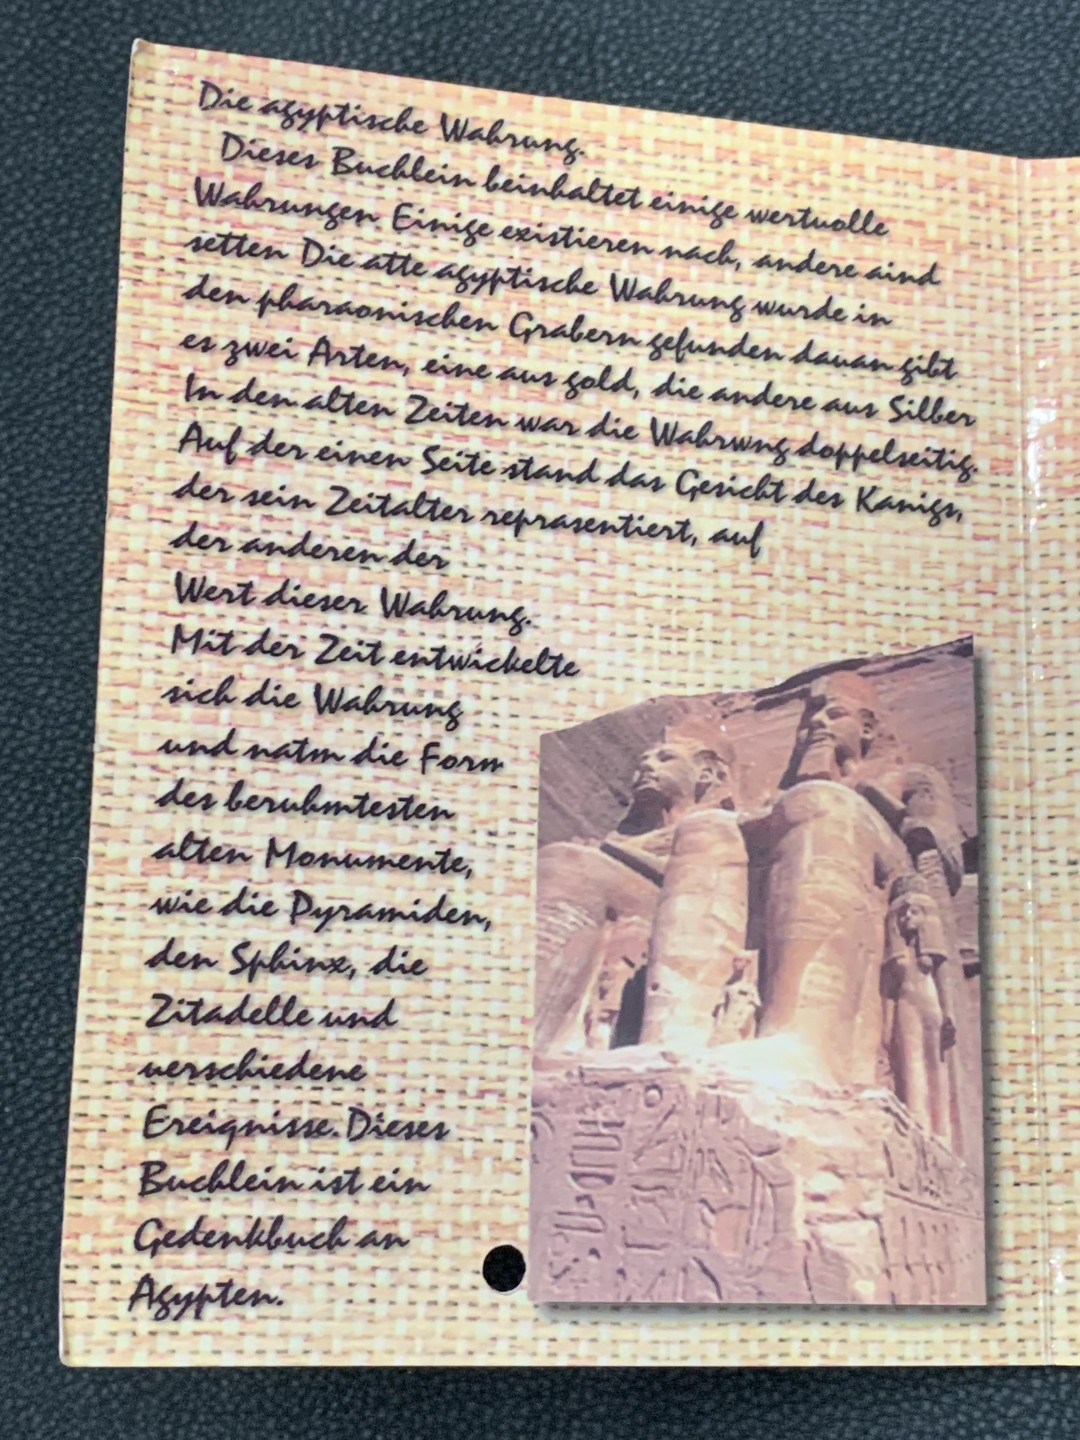 Die agyptische Wahrung.
Dieses Buchlein beinhaltet einige wertuolle
Wahrungen. Einige existieren nach, andere aind
setten Die atte agyptische Wahrung wurde in
den pharaonischen Grabern gefunden dauan gibt
es zwei Arten, eine aus gold, die andere aus Silber
In den alten Zeiten war die Wahrwng doppelseitig.
Auf der einen Seite stand das Gesicht des Kanigs,
der sein Zeitalter reprasentiert, auf
der anderen der
Wert dieser Wahrung.
Mit der Zeit entwickelte
sich die Wahrung
und natm die Form
des beruhmtesten
alten Monumente,
wie die Pyramiden,
den Sphinx, die
Zitadelle und
uerschiedene
Ereignisse. Dieses
Buchlein ist ein
Gedenkbuch an
Agypten.